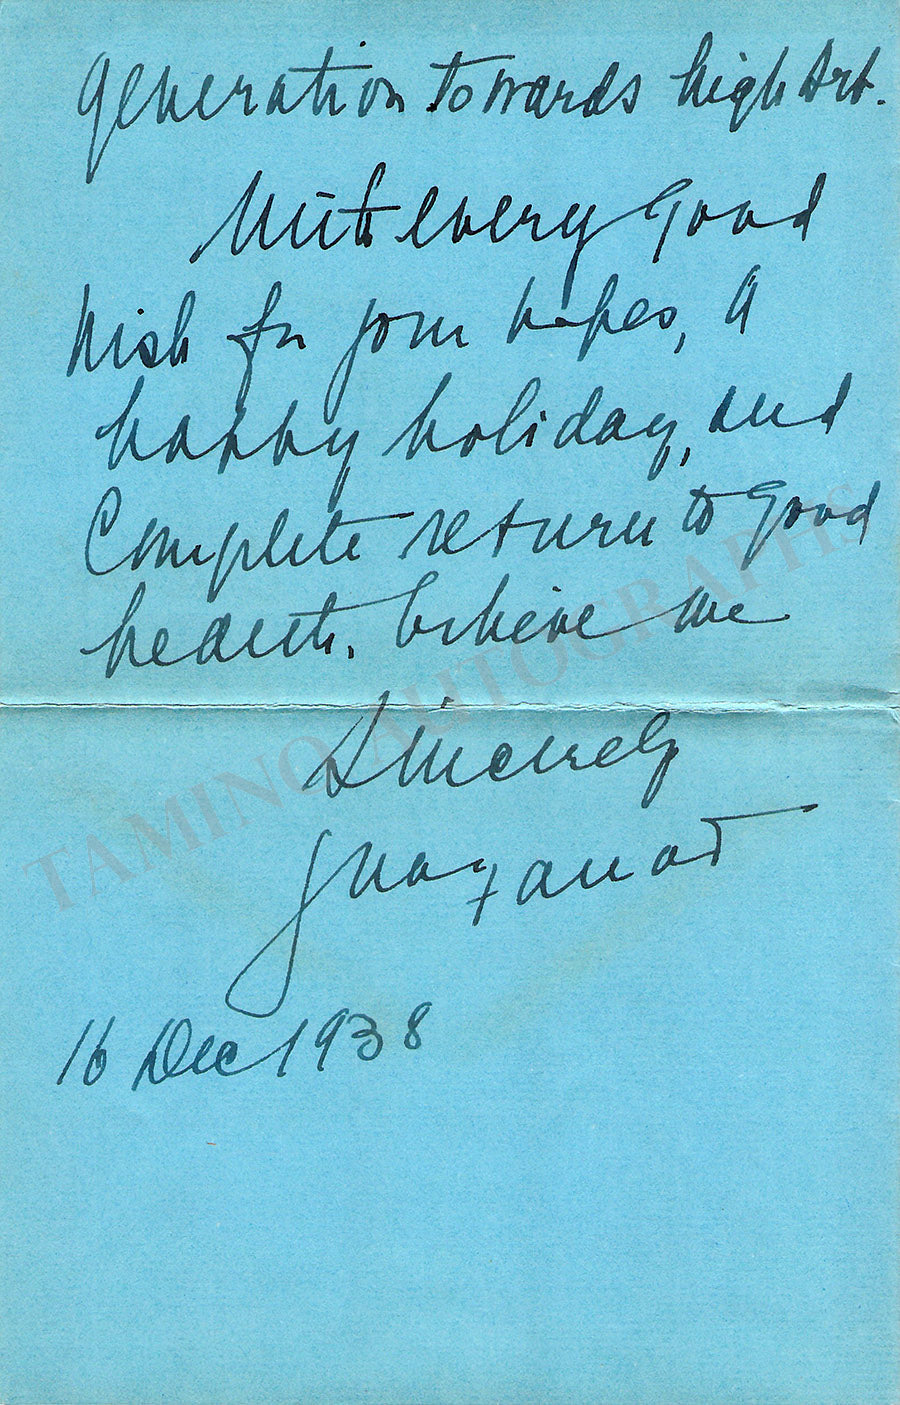 generation towards high Art.
With every good
wish for your hopes, a
happy holiday, and
Complete return to good
health. believe me
Sincerely
16 Dec 1938
TAMINO AUTOGRAPHS